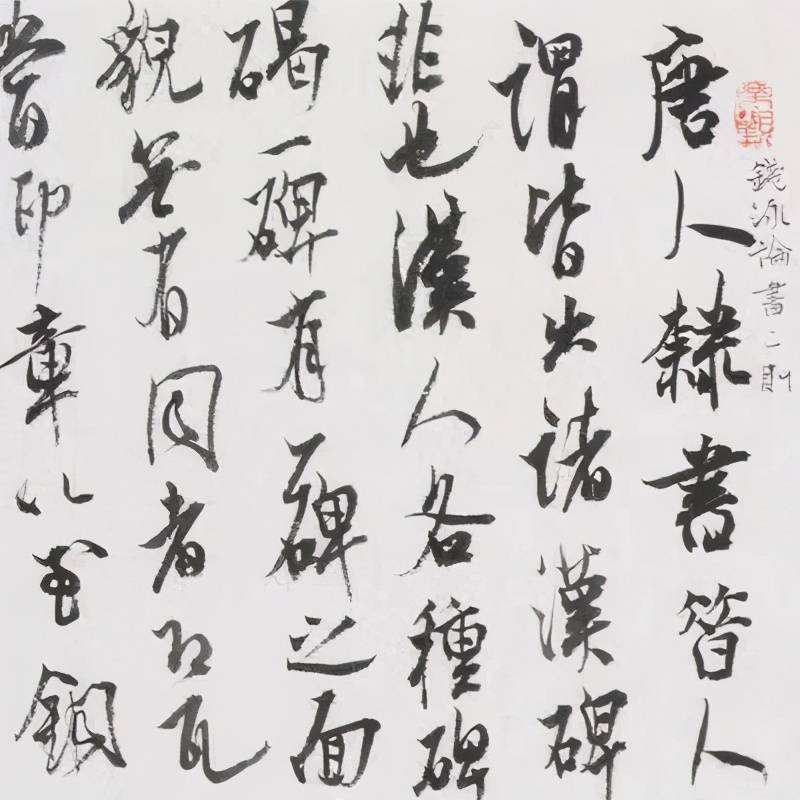 錢泳論書二則
唐人隸書昔人
謂皆出諸漢碑
非也漢人各種碑
碣一碑有一碑之面
貌無有同者即瓦
當印章以至銅